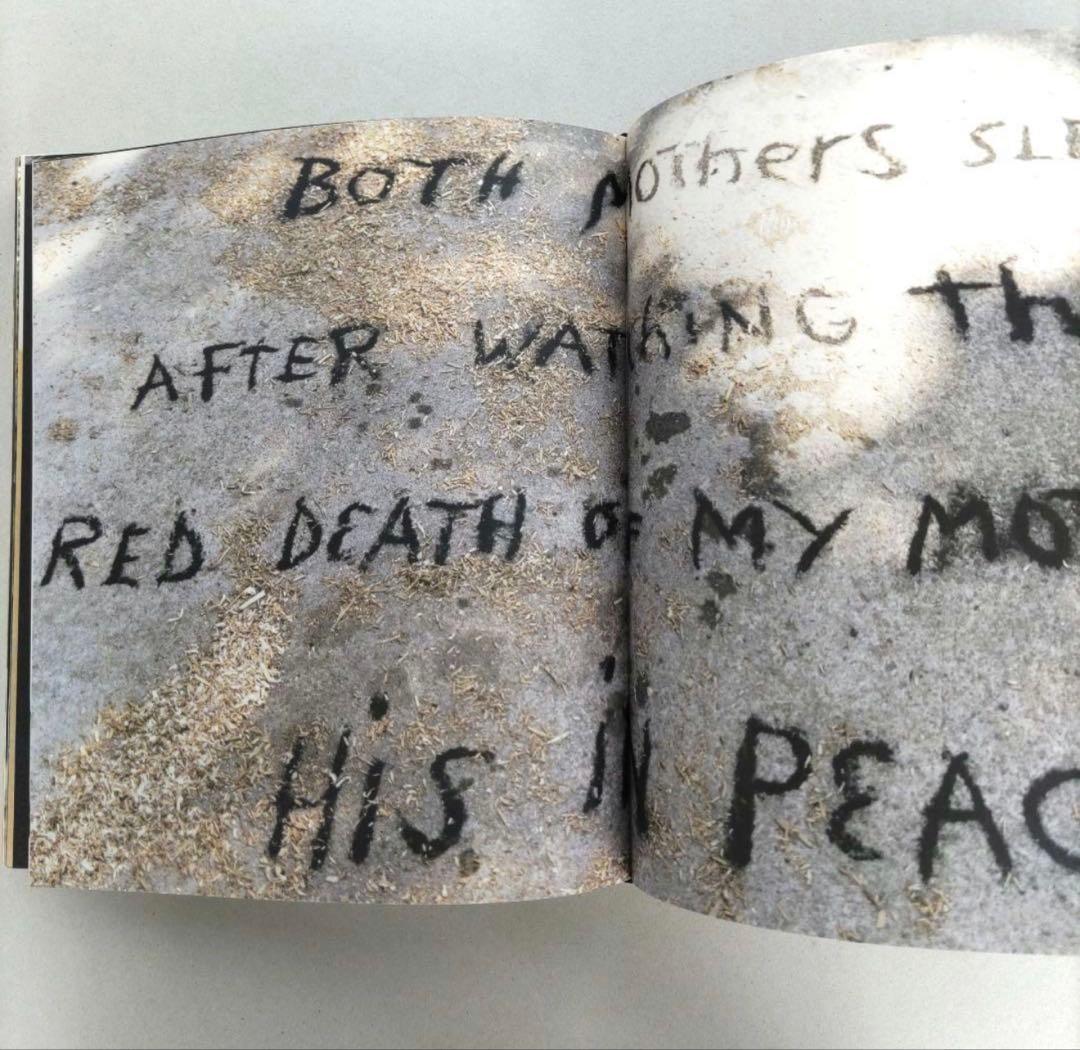 BOTH MOTHERS SLE
AFTER WATCHING Th
RED DEATH OF MY MOT
HiS iN PEAC